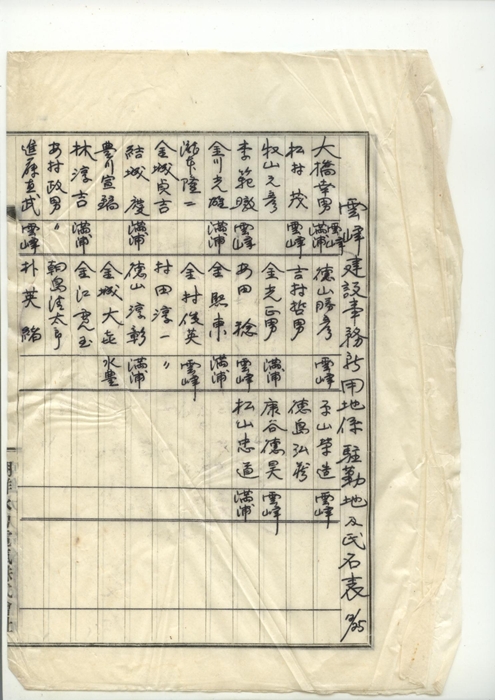 雲峰建設事務所用地係 駐勤地及氏名表
大橋幸男 雲峰 満浦 徳山勝彦 雲峰 子山榮造 雲峰
松村茂 雲峰 吉村哲男 徳島弘 雲峰
牧山元彦 金光正男 満浦 康谷徳昊 雲峰
李範暾 雲峰 安田稔 雲峰 松山忠道 満浦
金川光雄 満浦 金熙東 満浦
瀬本隆二 金村俊英 雲峰
金城貞吉 村田淳一 〃
結城 満浦 徳山淳彰 満浦
豊川宣 金城大 水豊
林淳吉 満浦 金江
安村政男 〃 太郎
進藤直武 雲峰 朴英